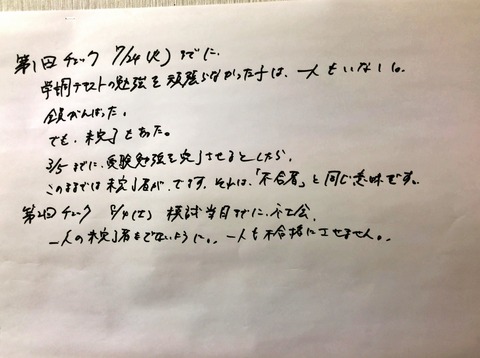 第1回チェック 7/24(火)までに、
学期テストの勉強を頑張らなかった子は、一人もいない。
全員がんばった。
でも、未完了もあった。
3/5までに、受験勉強を完了させるとしたら、
このままでは未完了者が、でます。それは、「不合格」と同じ意味です。
第2回チェック 8/11(土) 模試当日までに、理社会。
一人の未完了者もでないように。一人も不合格にさせません。